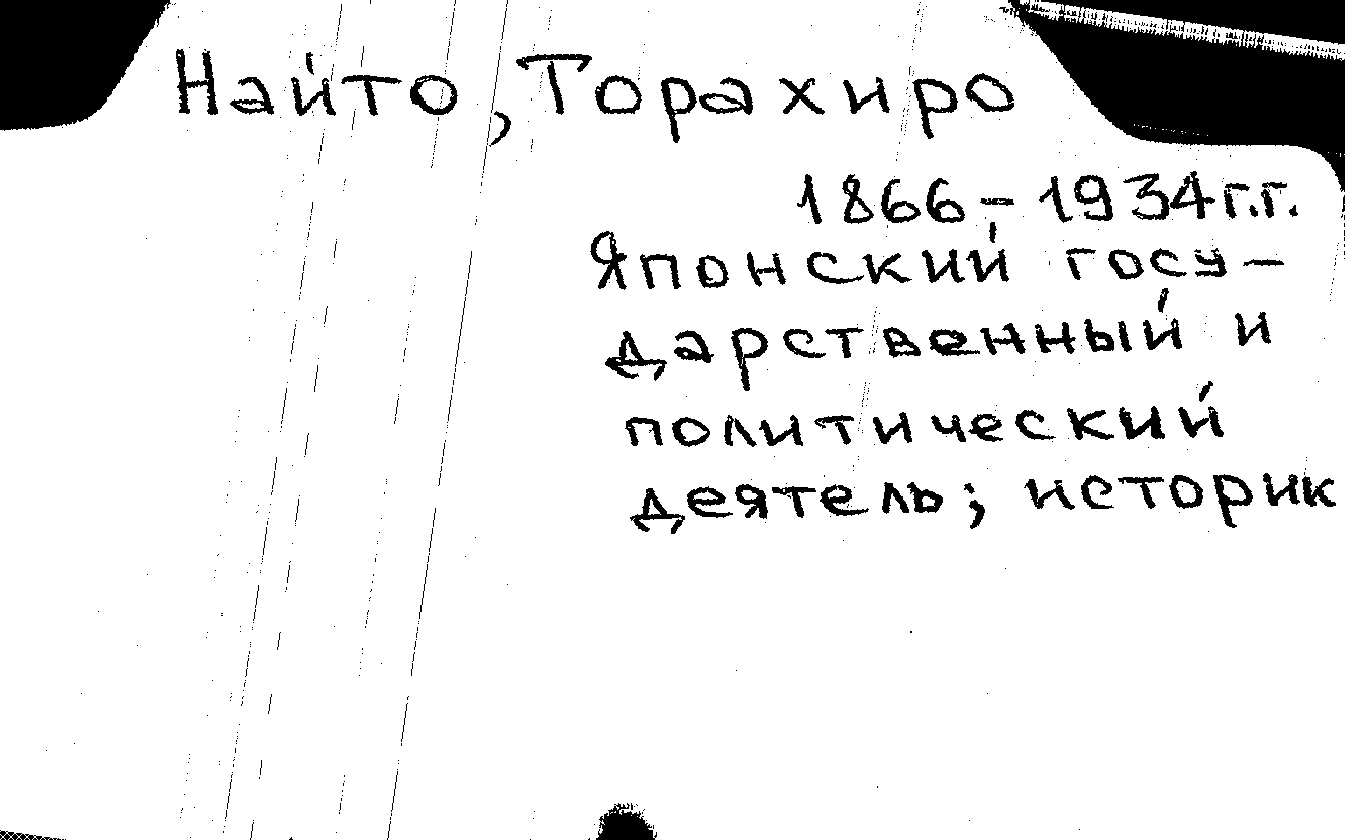 Найто, Торахиро
1866-1934г.г.
Японский госу-
дарственный и
политический
деятель; историк